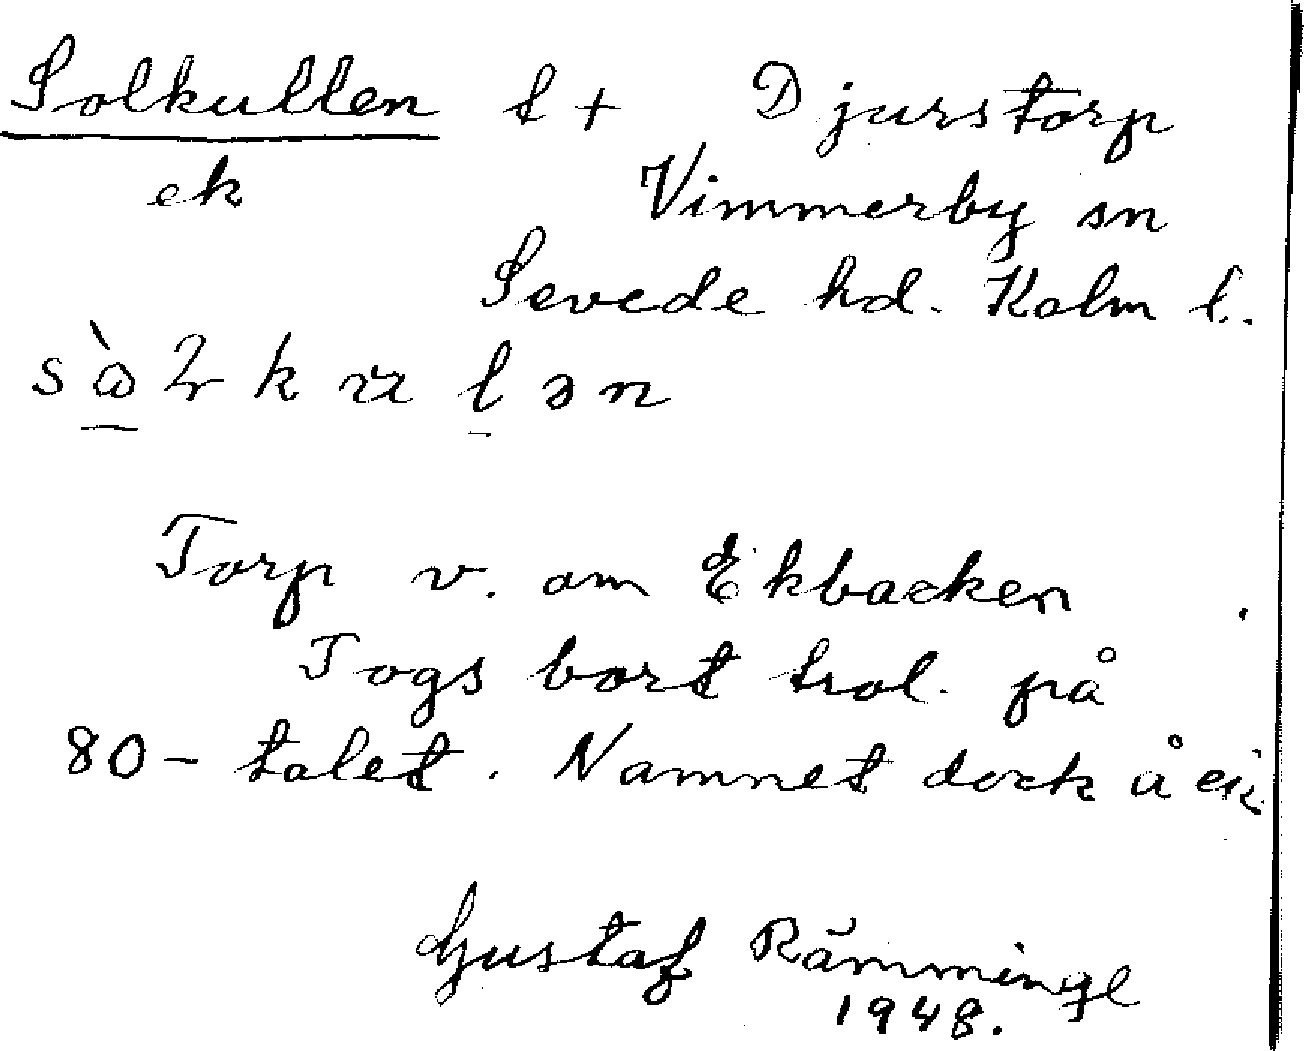 Solkullen t + Djurstorp
ek Vimmerby sn
Sevede hd. Kalm l.
Torp v. om Ekbacken
Togs bort trol. på
80-talet. Namnet dock å ek
Gustaf Rämmingl
1948.